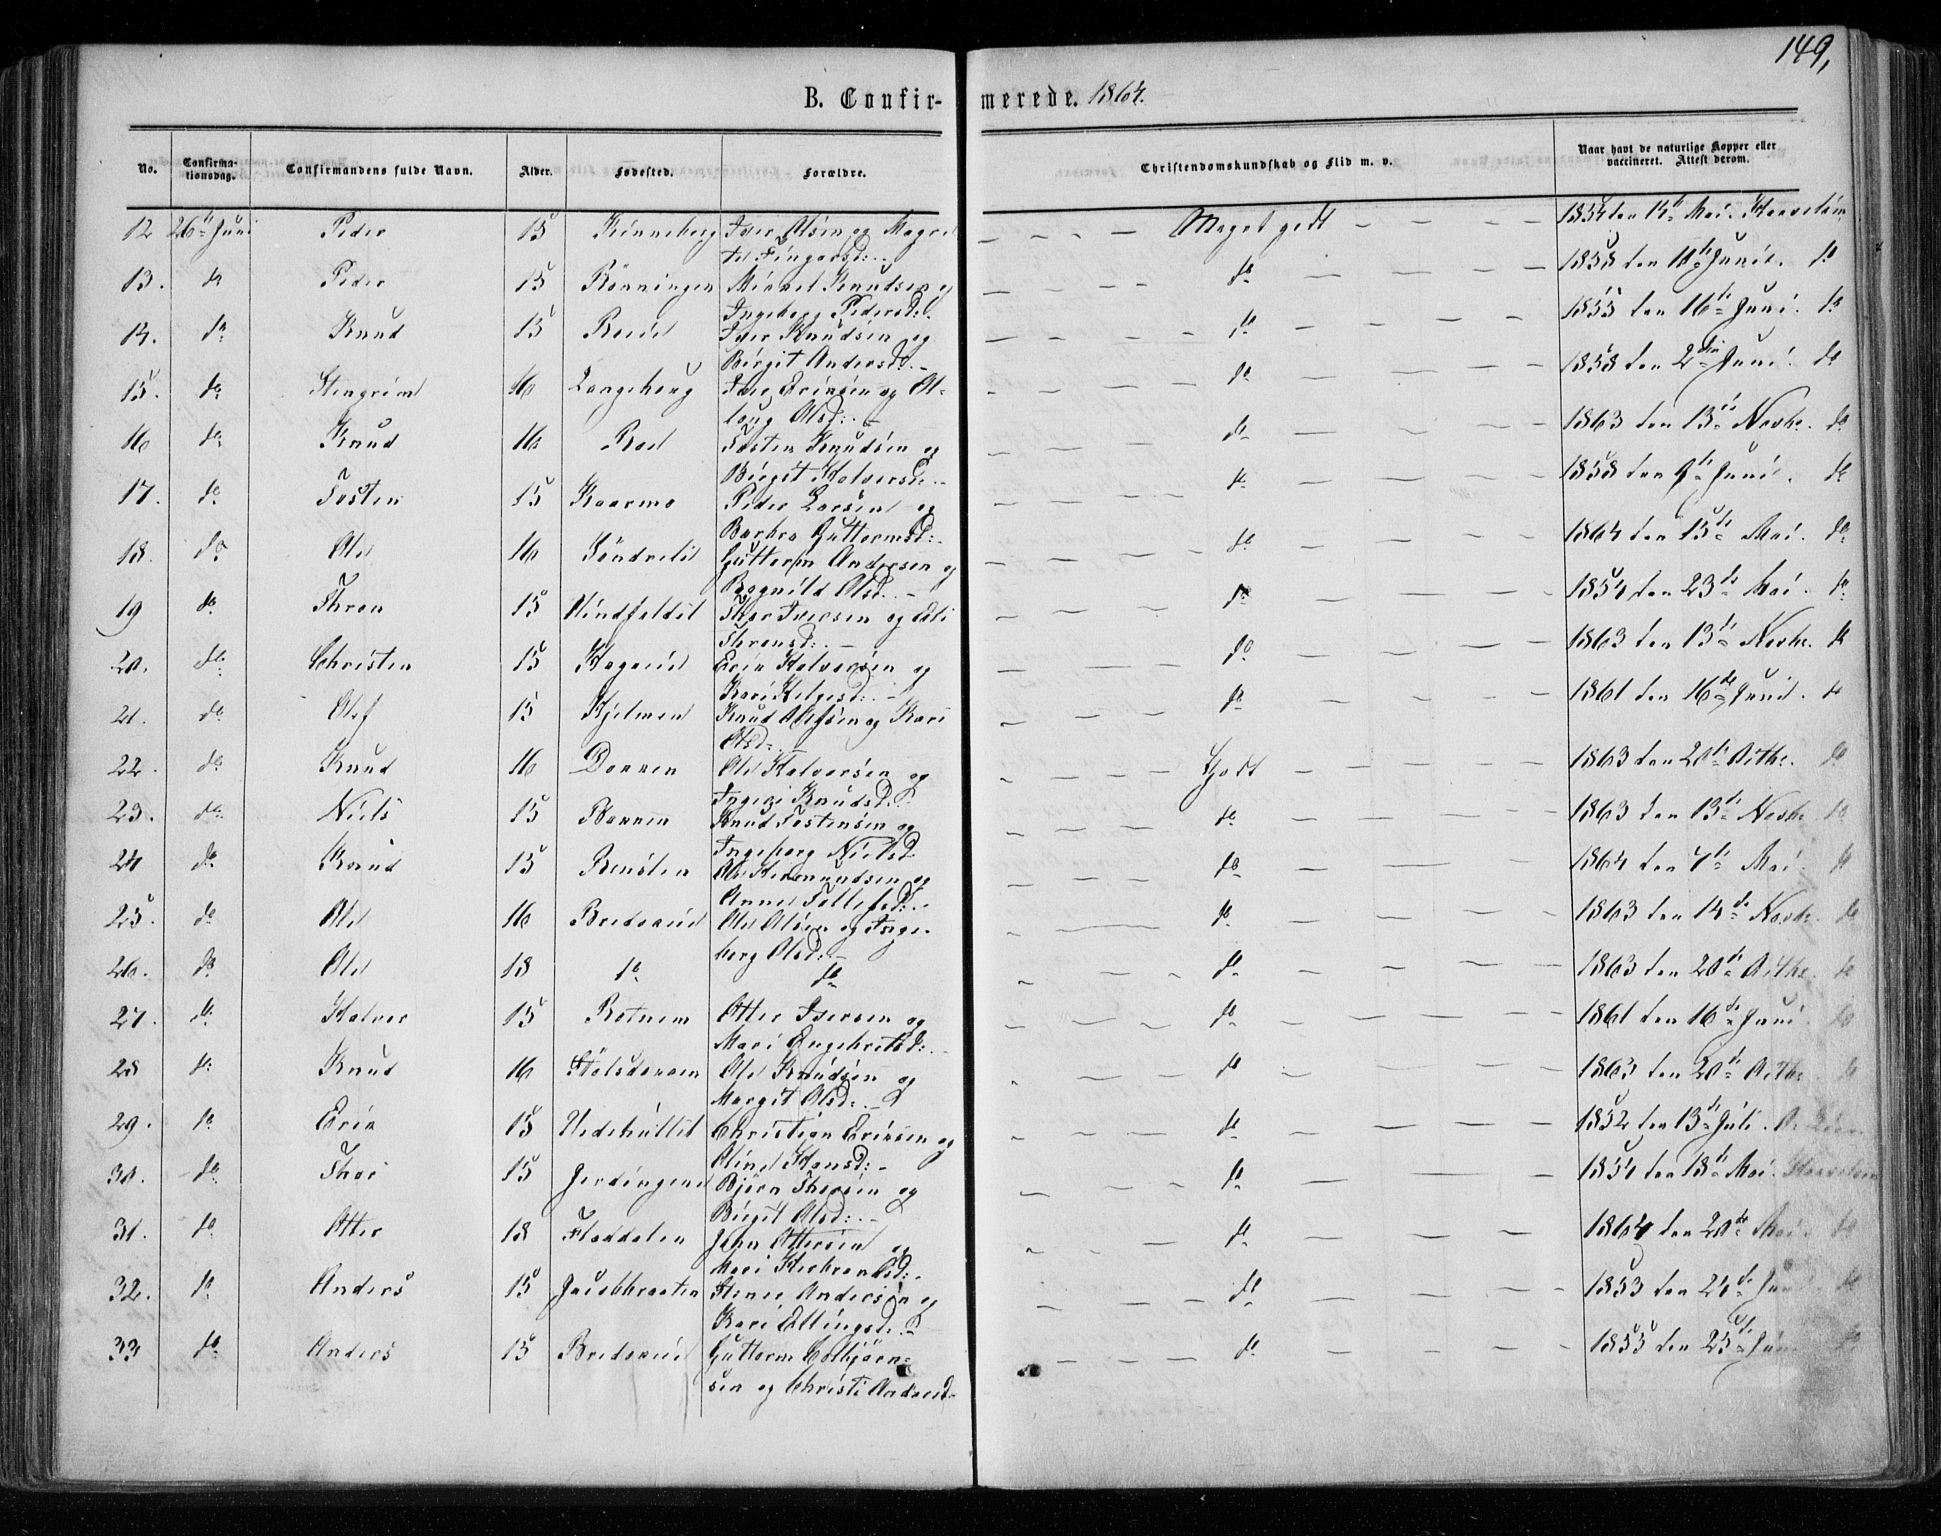 149,
B. Confirmerede. 1864.
No. Confirmationsdag. Confirmandens fulde Navn. Alder. Fødested. Forældre. Christendomskundskab og Flid m. v. Naar havt de naturlige Kopper eller vaccineret. Attest derom.
12 26de Juni Peder 15 Iver Olsen og Meget godt 1854 den Mai.
13. do Peder 15 Rønningen Mikkel Knudsen og do 1858 den Juni. do
Ingeborg Pedersd:
14. do Knud 15 Iver Knudsen og do 1855 den 16de Juni. do
Birgit Andersd:
15. do Stengrim 16 Langehaug og do 1858 den 2den Juni. do
Olsd:
16 do Knud 16 Tosten Knudsen og do 1863 den 13de Novbr. do
Birgit Halvorsd:
17. do Tosten 15 Kaarmo Peder Larsen og do 1858 den Juni. do
Barbro Guttormsd:
18. do Ole 16 Søndrelie Guttorm Andersen og do 1864 den 15de Mai. do
Ragnild Olsd:
19 do Thron 15 Vindfaldet Thor Iversen og do 1854 den 23de Mai. do
Thronsd:
20. do Christen 15 Hagarud Eric Halvorsen og do 1863 den 13de Novbr. do
Kari Helgesd:
21. do Olef 15 Hjelmen Knud Olefsen og Kari do 1861 den 16de Juni. do
Olsd:
22. do Knud 16 Dokken Ole Halvorsen og Godt 1863 den 20de Octbr. do
Knudsd:
23. do Niels 15 Bakken Knud Tostensen og do 1863 den 13de Novbr. do
Ingeborg Nielsd
24 do Knud 15 Ole Hermundsen og do 1864 den 7de Mai. do
Anne
25. do Ole 16 Bredsrud Ole Olsen og Inge- do 1863 den 14de Novbr. do
borg Olsd:
26. do Ole 18 do do do 1863 den 20de Octbr. do
27. do Halvor 15 Rotnem Otter Iversen og do 1861 den 16de Juni. do
Mari Engebretsd:
28 do Knud 16 Ole Knudsen og do 1863 den 20de Octbr. do
Margit Olsd:
29. do Eric 15 Christian Ericsen og do 1852 den 13de Juli.
Oline Hansd:
30. do Thor 15 Gjerdingen Bjørn Thorsen og do 1854 den 18de Mai.
Birgit Olsd:
31. do Otter 18 Fladdalen John Ottersen og do 1864 den 20de Mai. do
Mari Herbrandsd:
32. do Anders 15 Jacobbraaten Andersen og do 1853 den Juni do
Kari Ellingsd:
33 do Anders 15 Bredsrud Guttorm Colbjørn- do 1855 den 25de Juni do
sen og Christi Andersd: